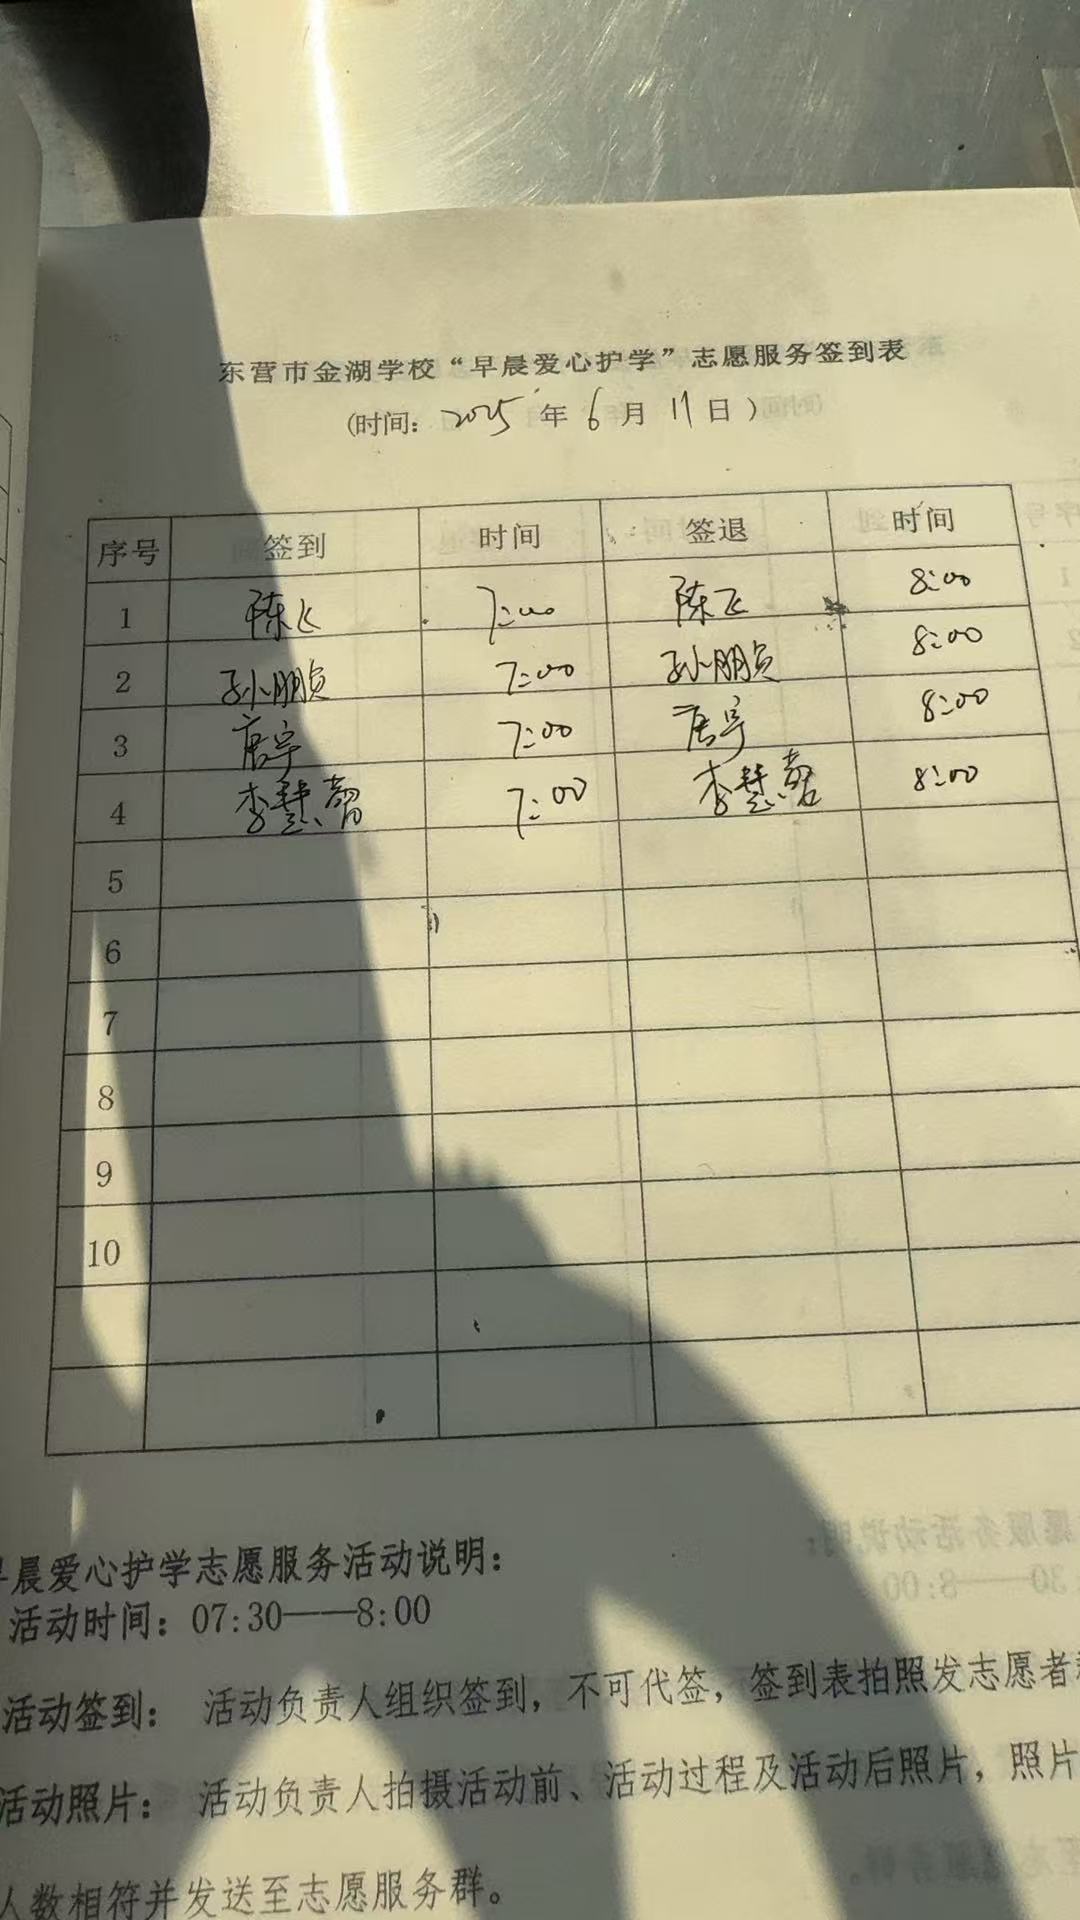 东营市金湖学校“早晨爱心护学”志愿服务签到表
(时间: 2025 年 6 月 11 日)
序号 签到 时间 签退 时间
1 陈飞 7:00 陈飞 8:00
2 孙朋贞 7:00 孙朋贞 8:00
3 唐宇 7:00 唐宇 8:00
4 李慧 7:00 李慧 8:00
5
6
7
8
9
10
早晨爱心护学志愿服务活动说明:
活动时间: 07:30——8:00
活动签到: 活动负责人组织签到, 不可代签, 签到表拍照发志愿者
活动照片: 活动负责人拍摄活动前、活动过程及活动后照片, 照片
人数相符并发送至志愿服务群。